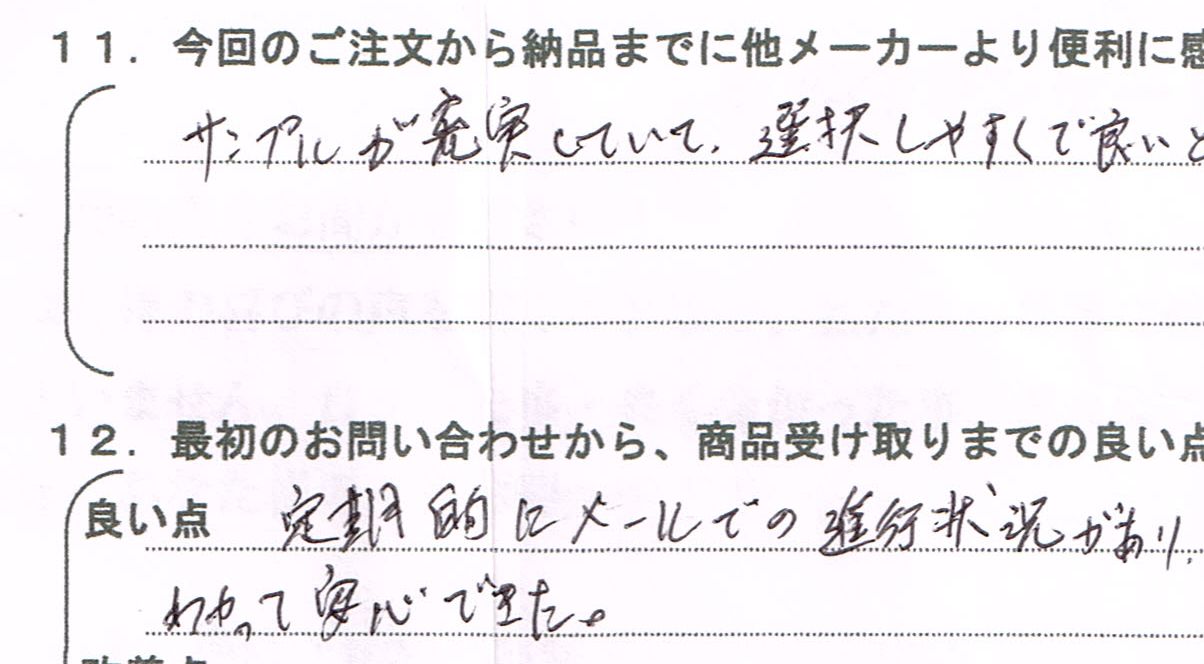 11. 今回のご注文から納品までに他メーカーより便利に感
サンプルが充実していて、選択しやすくて良いと
12. 最初のお問い合わせから、商品受け取りまでの良い点
良い点 定期的にメールでの進行状況があり、
わかって安心できた。
改善点